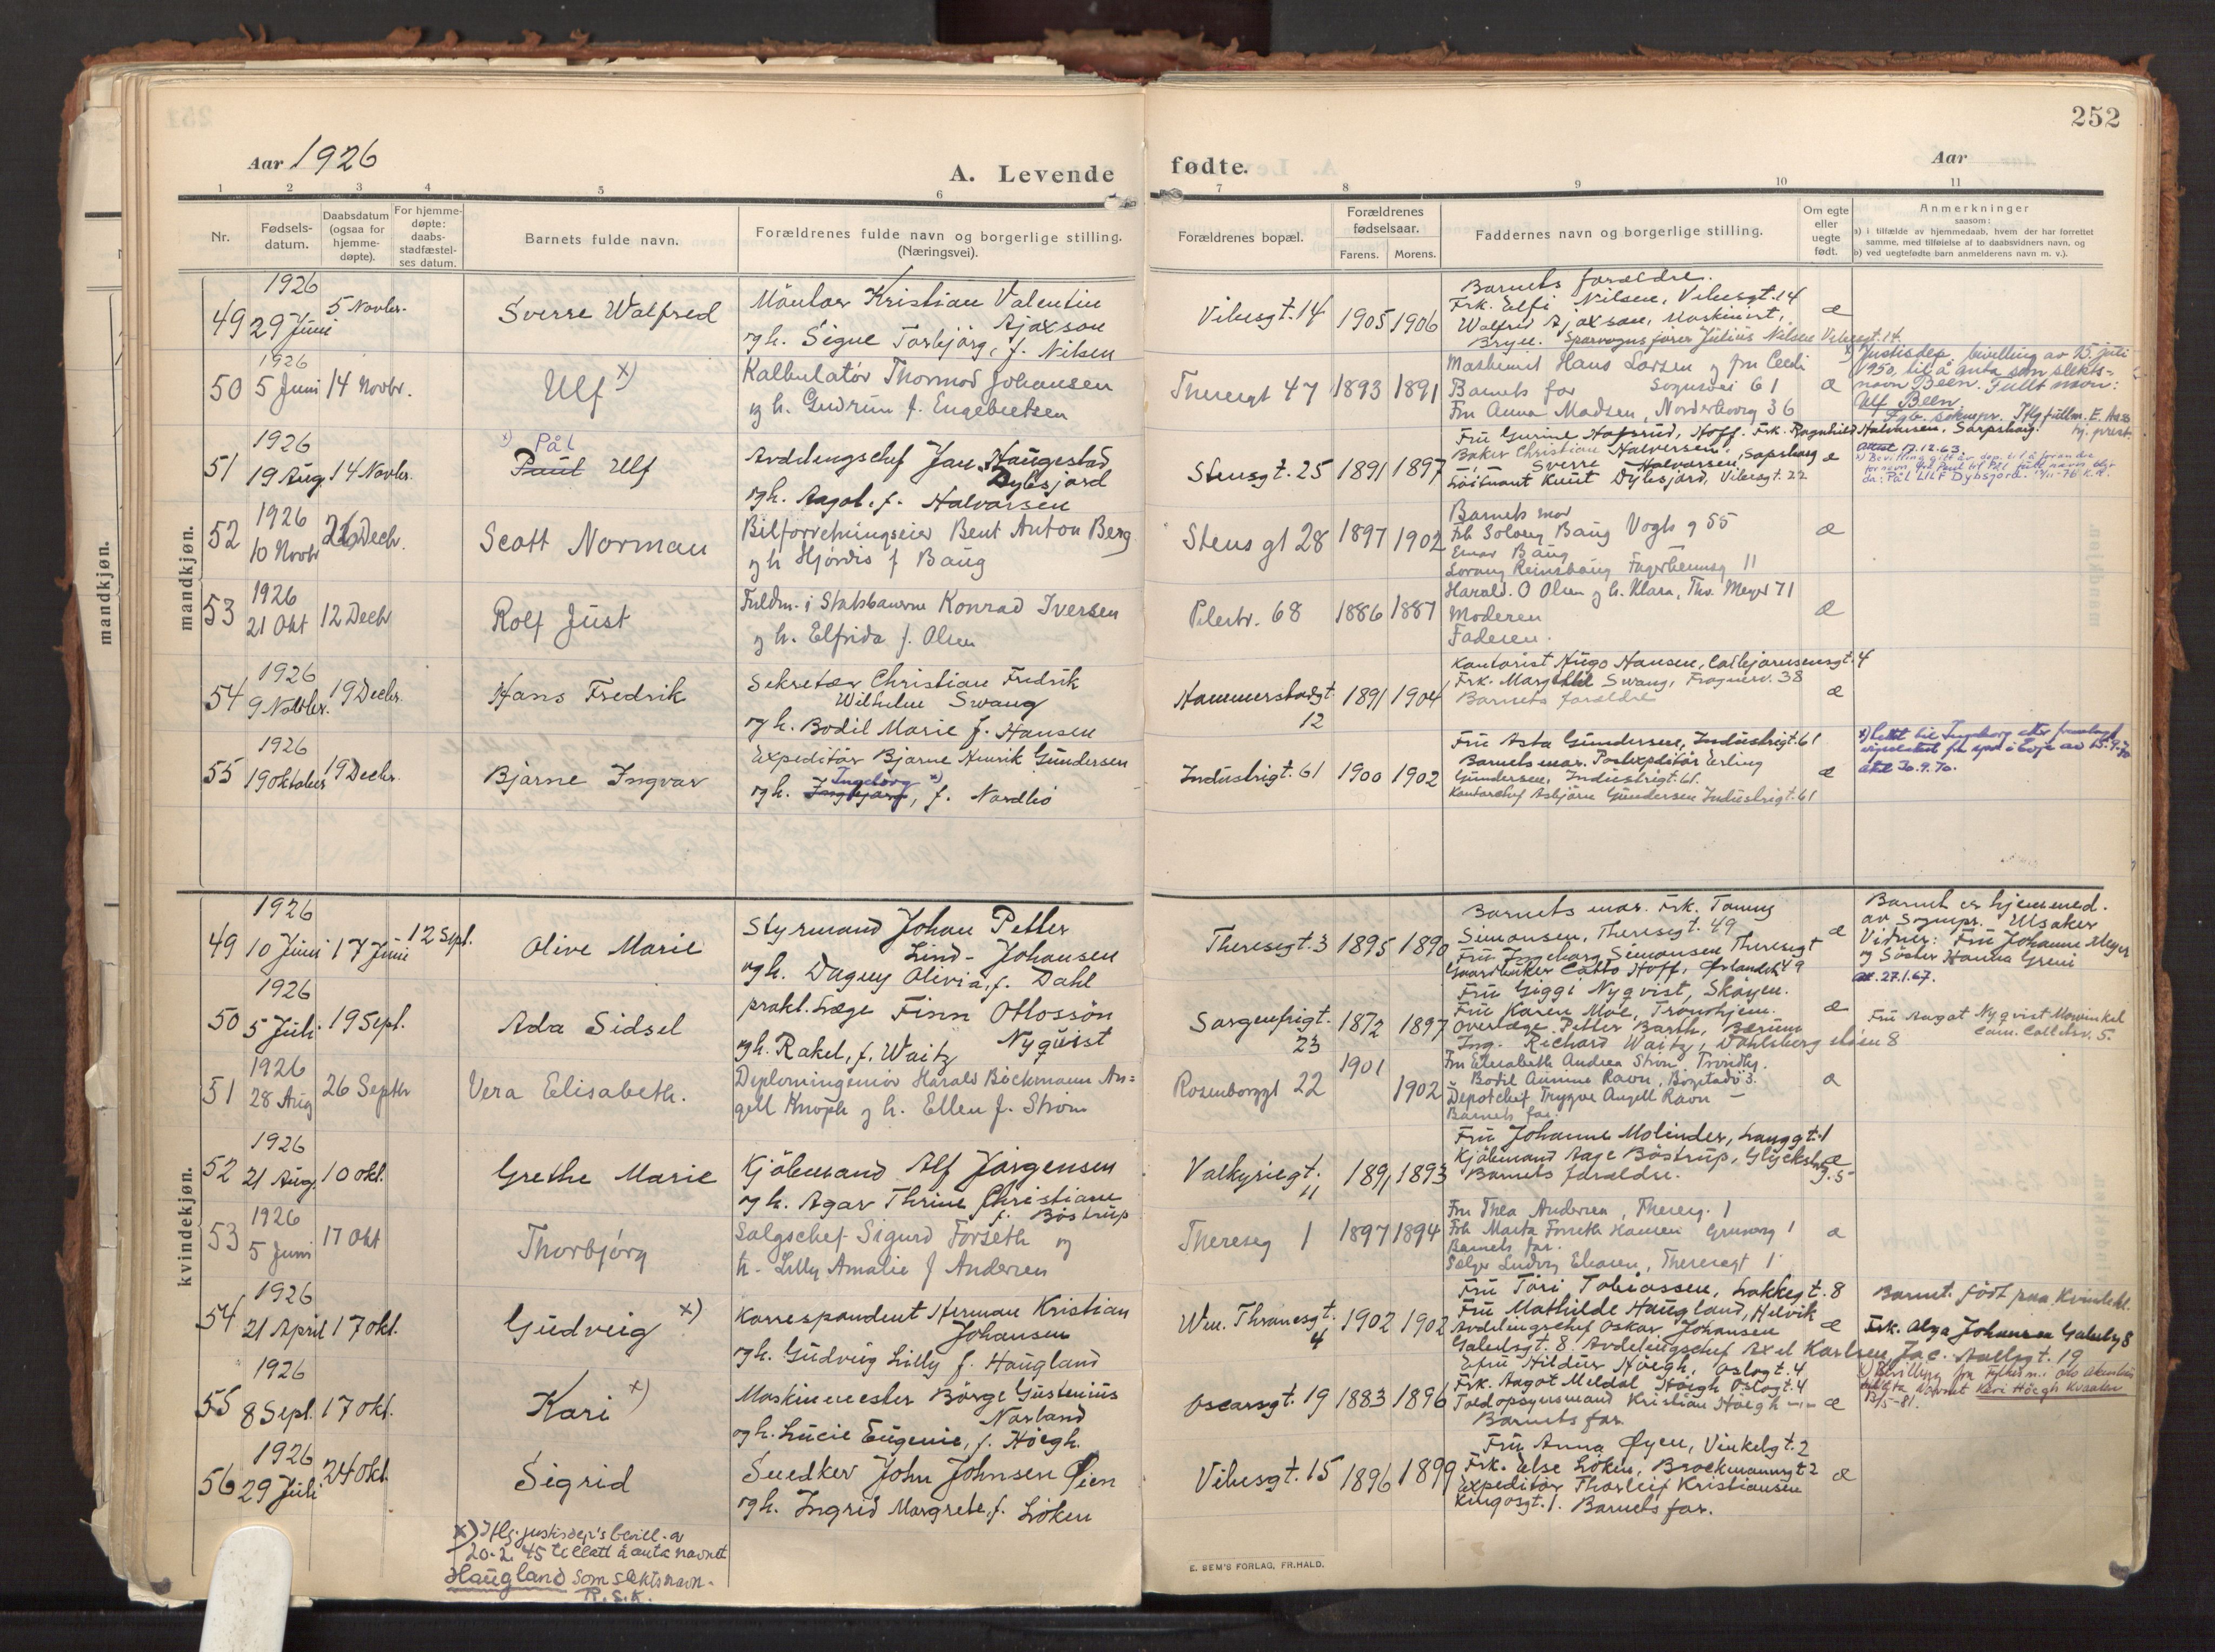 252
Aar 1926
A. Levende
fødte.
Aar
1 2 3 4 5 6 7 8 9 10 11
Nr.
Fødsels-
datum.
Daabsdatum
(ogsaa for
hjemme-
døpte).
For hjemme-
døpte:
daabs-
stadfæstel-
ses datum.
Barnets fulde navn.
Forældrenes fulde navn og borgerlige stilling.
(Næringsvei).
Forældrenes bopæl.
Forældrenes
fødselsaar.
Farens. Morens.
Faddernes navn og borgerlige stilling.
Om egte
eller
uegte
født.
Anmerkninger
saasom:
a) i tilfælde av hjemmedaab, hvem der har forrettet
samme, med tilføielse af to daabsvidners navn, og
b) ved uegtefødte barn anmelderens navn m. v.).
mandkjøn.
mandkjøn.
1926
49 29 Juni 5 Novbr.
Sverre Walfred
Montør Kristian Valentin
Ajaxson
og h. Signe Torbjörg, f. Nilsen
Vibesgt. 14 1905 1906
Barnets forældre.
Frk. Elfi Nilsen, Vibesgt. 14
Walfred Ajaxson, Maskinist,
Bryn. Sporvognsfører Julius Nilsen Vibesgt. 14.
æ
1926
50 5 Juni 14 Novbr.
Ulf x)
Kalkulatør Thormod Johansen
og h. Gudrun f. Engebretsen
Theresgt 47 1893 1891
Maskinist Hans Larsen og fru
Sognsvei 61
Barnets far
Fru Anna Madsen, Norderhovg 36
æ
x) Justisdep. bevilling av 15. juli
1950 til å anta som slekts-
navn Been. Fullt navn:
Ulf Been.
1926
51 19 Aug 14 Novbr.
x) Pål
Paul Ulf
Avdelingschef Jan Haugestad
Dybsjord
og h. Aagot, f. Halvorsen
Stensgt. 25 1891 1897
Fru Gurine Hofsrud, Hoff. Frk. Ragnhild Halvorsen, Sarpsborg.
Baker Christian Halvorsen,
Sverre Halvorsen, Sarpsborg
Löitnant Knut Dybsjord, Vibesgt. 22
æ
Attest 17.12.63
x) Bevilling gitt av dep. til å forandre
fornavn fra Paul til Pål
da: Pål Ulf Dybsjord.
1926
52 10 Novbr 26 Decbr.
Scott Norman
Bilforretningseier Bent Anton Berg
og h Hjørdis f Baug
Stensgt 28 1897 1902
Barnets mor
Frk Solveig Baug Vogts g 55
Einar Baug
Fagerheimsg 11
æ
1926
53 21 Okt 12 Decbr
Rolf Just
Fuldm. i Statsbanerne Konrad Iversen
og h. Elfrida f. Olsen
Pilestr. 68 1886 1887
Harald. O Olsen og h. Klara, Thv. Meyer 71
Moderen
Faderen.
æ
1926
54 9 Novbr. 19 Decbr.
Hans Fredrik
Sekretær Christian Fredrik
Wilhelm Swang
og h. Bodil Marie f. Hansen
Hammerstadgt.
12
1891 1904
Kontorist Hugo Hansen, Colbjørnsensgt. 4
Frk. Margit Swang, Frognerv. 38
Barnets forældre
æ
1926
55 19 Oktober 19 Decbr.
Bjarne Ingvar
Expeditør Bjarne Henrik Gundersen
Ingeborg x)
og h. Ingbjørg, f. Nordbö
Industrigt. 61 1900 1902
Fru Asta Gundersen, Industrigt. 61
Barnets mor. Postexpeditör Erling
Gundersen, Industrigt. 61.
Kontorchef Asbjörn Gundersen Industrigt. 61
æ
x) rettet til Ingeborg etter fremlagt
av 15.9.70
Attest 30.9.70.
kvindekjøn.
1926
49 10 Juni 17 Juni 12 Sept.
Olive Marie
Styrmand Johan Petter
Lind-Johansen
og h. Dagny Olivia, f. Dahl
Theresegt. 3 1895 1890
Barnets mor. Frk. Tommy
Simonsen, Theresegt. 49
Fru Ingeborg Simonsen Theresegt
49
Gaardbruker Catto Hoff, Ørlandet
æ
Barnet er hjemmed.
av Sognepr. Ulsaker
Vidner: Fru Johanne Meyer
og Söster Hanna Greni
att. 27.1.67.
1926
50 5 Juli 19 Sept.
Ada Sidsel
prakt. Læge Finn Ottossön
Nyquist
og h. Rakel, f. Waitz
Sorgenfrigt.
23
1872 1897
Fru Giggi Nyqvist, Skøyen.
Fru Karen Moe, Trondhjem.
Overlæge Petter Barth, Bærum
Ing. Richard Waitz, Dahlsborg 8
æ
Fru Aagot Nyqvist Mowinkel
Cam. Collettsv. 5.
1926
51 28 Aug 26 Septbr
Vera Elisabeth.
Diplomingeniør Harald Böckmann An=
gell Knoph og h. Ellen f. Strøm
Rosenborggt 22 1901 1902
Fru Elisabeth Andrea Strøm
Bodil Aumine Ravn, Bogstadv 3.
Depotchef Trygve Angell Ravn —
Barnets far.
æ
1926
52 21 Aug. 10 Okt.
Grethe Marie
Kjöbmand Alf Jörgensen
og h. Agar Thrine Christiane
f. Böstrup
Valkyriegt.
11
1891 1893
Fru Johanne Molinder, Langgt. 1
Kjöbmand Aage Böstrup,
g. 5
Barnets forældre.
æ
1926
53 5 Juni 17 Okt
Thorbjørg
Salgschef Sigurd Forseth og
h. Lilly Amalie f Andersen
Thereseg 1 1897 1894
Fru Thea Andersen, Thereseg. 1
Frk Marta Forseth Hansen Gruverg 1
Barnets far.
Selger Ludvig Eliasen, Theresegt 1
æ
1926
54 21 April 17 Okt.
Gudveig x)
Korrespondent Herman Kristian
Johansen
og h. Gudveig Lilly f. Haugland
Wm. Thranesgt.
4
1902 1902
Fru Tori Tobiassen, Lakkegt. 8
Fru Mathilde Haugland, Helvik
Avdelingschef Oskar Johansen
Galebgt. 8. Avdelingschef Axel Karlsen, Jac. Aallsgt. 19
æ
Barnet født paa Kvindekl.
Frk. Olga Johansen 8
1926
55 8 Sept. 17 Okt.
Kari x)
Maskinmester Börge Gustenius
Norland
og h. Lucie Eugenie, f. Höegh.
Oscarsgt. 19 1883 1896
Fru Hildur Höegh, Oslogt. 4
Frk. Aagot Meldal Höegh Oslogt. 4
Toldopsynsmand Kristian Höegh —"—
Barnets far.
æ
x) Bevilling fra Fylkesm. i Oslo Akershus
navnet Kari Höegh Kvaalen
13/5-81.
1926
56 29 Juli 24 Okt.
Sigrid
Snedker John Johnsen Øien
og h. Ingrid Margrete, f. Löken
Vibesgt. 15 1896 1899
Fru Anna Øyen, Vinkelgt. 2
Frk. Else Löken, Brockmannsgt 2
Expeditör Thorleif Kristiansen
Kingosgt. 1. Barnets far.
æ
x) Iflg. justisdep's bevill. av
20.2.45 tillatt å anta navnet
Haugland som slektsnavn.
R.S.K.
E. SEM'S FORLAG, FR.HALD.